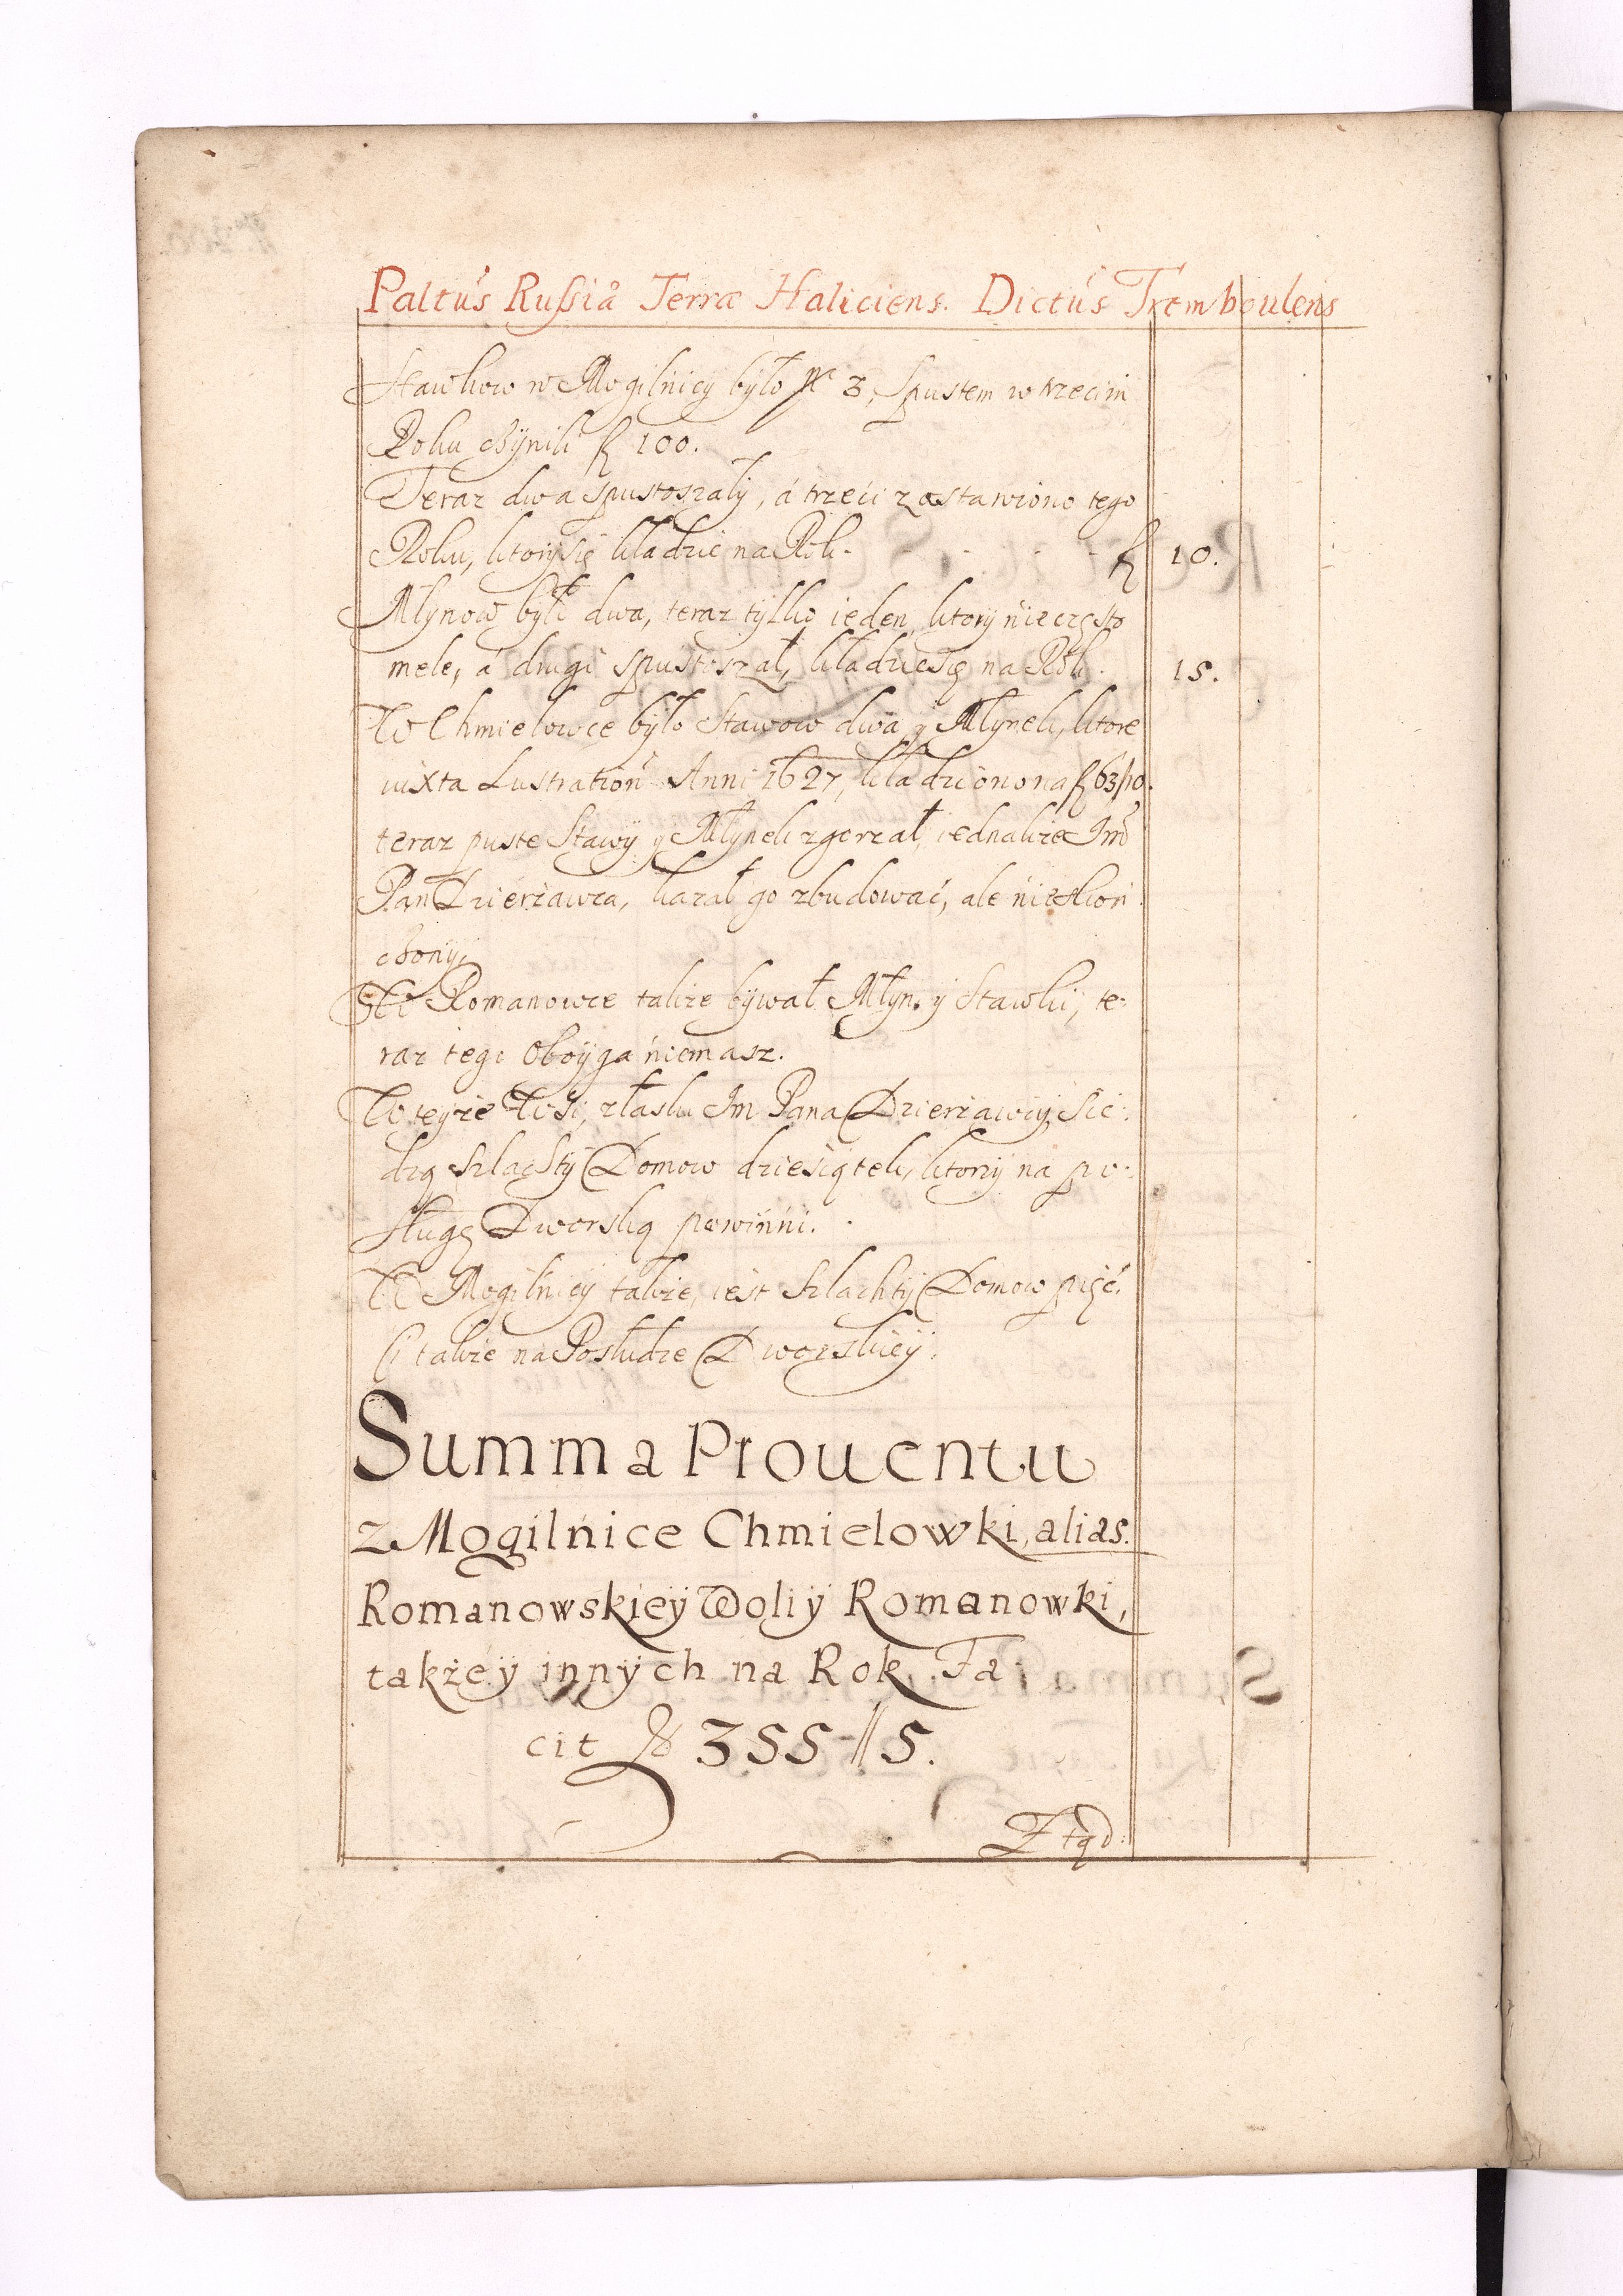 Paltus Russiæ Terræ Haliciens. Dictus Tremboulens
Stawkow w Mogilnicy było Nº 3, Spustem w trzecim
Roku czynili fl 100.
Teraz dwa spustoszały, á trzeci zastawiono tego
Roku, ktory się kładzie na Rok - - - - fl 10.
Młynow było dwa, teraz tylko ieden, ktory nieczęsto
mele, á drugi spustoszał, kładzie się na Rok. 15.
W Chmielowce było Stawow dwa y Młynek, ktore
iuxta Lustration Anni 1627, kładziono na fl 63/10.
teraz puste Stawy y Młynek zgorzał, iednakże Im
Pan Dzierżawca, kazał go zbudować, ale nieskon
czony.
W Romanowce także bywał Młyn y Stawki, te-
raz tego oboyga niemasz.
W teyże Wsi, złaski Im Pana Dzierżawcy, sie-
dzą szlachty Domow dziesiątek, ktorzy na po-
sługę Dworską powinni.
W Mogilnicy także, iest szlachty Domow pięć.
Ci także na Posłudze Dworskiey.
Summa Prouentu
z Mogilnice Chmielowki, alias.
Romanowskiey Woli y Romanowki,
także y innych na Rok. Fa-
cit fl 355 // 5.
Ztąd: